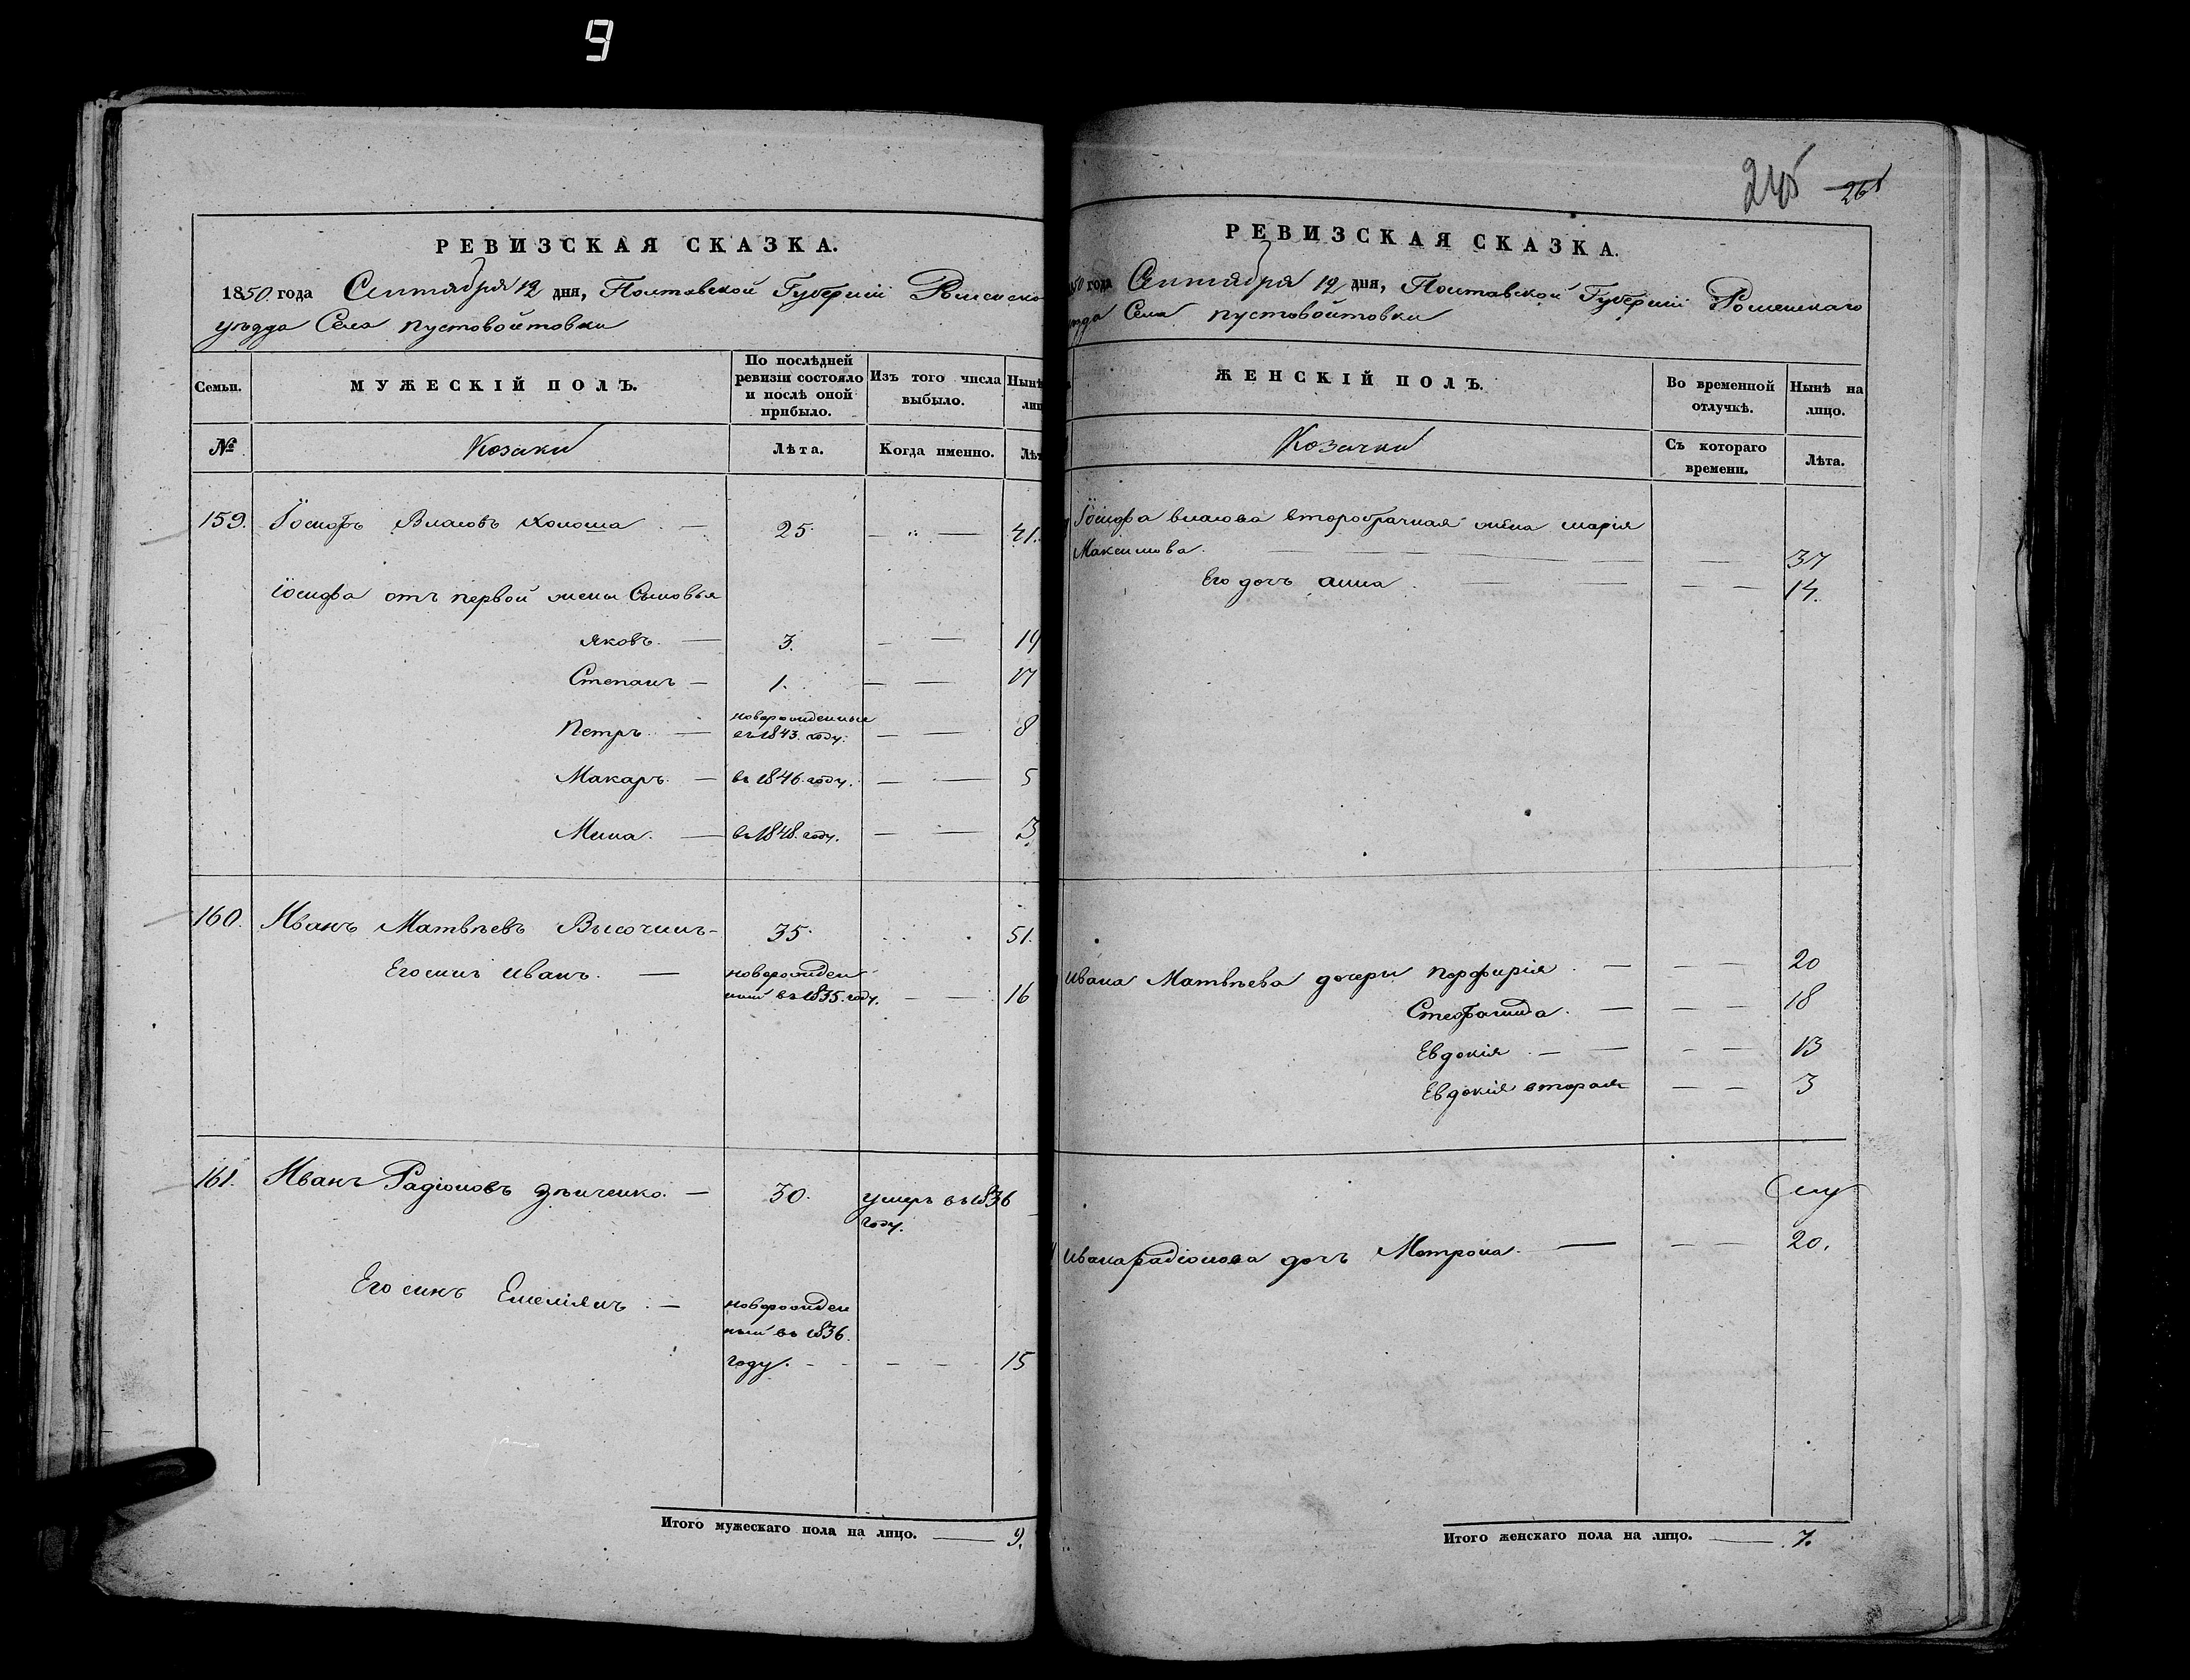 9
РЕВИЗСКАЯ СКАЗКА.
1850 года Сентября 12 дня, Полтавской Губерніи
уѣзда Села Пустовойтовки
Семьи.
МУЖЕСКІЙ ПОЛЪ.
По послѣдней ревизіи состояло и послѣ оной прибыло.
Изъ того числа выбыло.
Нынѣ
№
Козаки
Лѣта.
Когда именно.
159. Іосифъ Власовъ 25. 41.
Іосифа отъ первой жены Сыновья
Яковъ. 3. 19
Степанъ 1. 17
Петръ новорожденные въ 1843. году. 8
Макаръ въ 1846. году. 5
Мина. въ 1848. году. 3
160. Иванъ Матвѣевъ Височинъ 35. 51.
Его синъ Иванъ. новорожден
ный въ 1835. году. 16
161. Иванъ Радіоновъ 30. умеръ въ 1836
году.
Его синъ Емеліянъ новорожден
ный въ 1836.
году. 15
Итого мужескаго пола на лицо. 9.
245 261
РЕВИЗСКАЯ СКАЗКА.
года Сентября 12 дня, Полтавской Губерніи Роменскаго
Села Пустовойтовки
ЖЕНСКІЙ ПОЛЪ.
Во временной отлучкѣ.
Нынѣ на лицо.
Козачки
Съ котораго времени.
Лѣта.
Іосифа Власова второбрачная жена Марія
Максимова. 37
Его дочь Анна 14.
Ивана Матвѣева дочери Порфирія 20
Стефанида. 18
Евдокія 13
Евдокія вторая 3
Ивана Радіонова дочь Мотрона. 20.
Итого женскаго пола на лицо. 7.